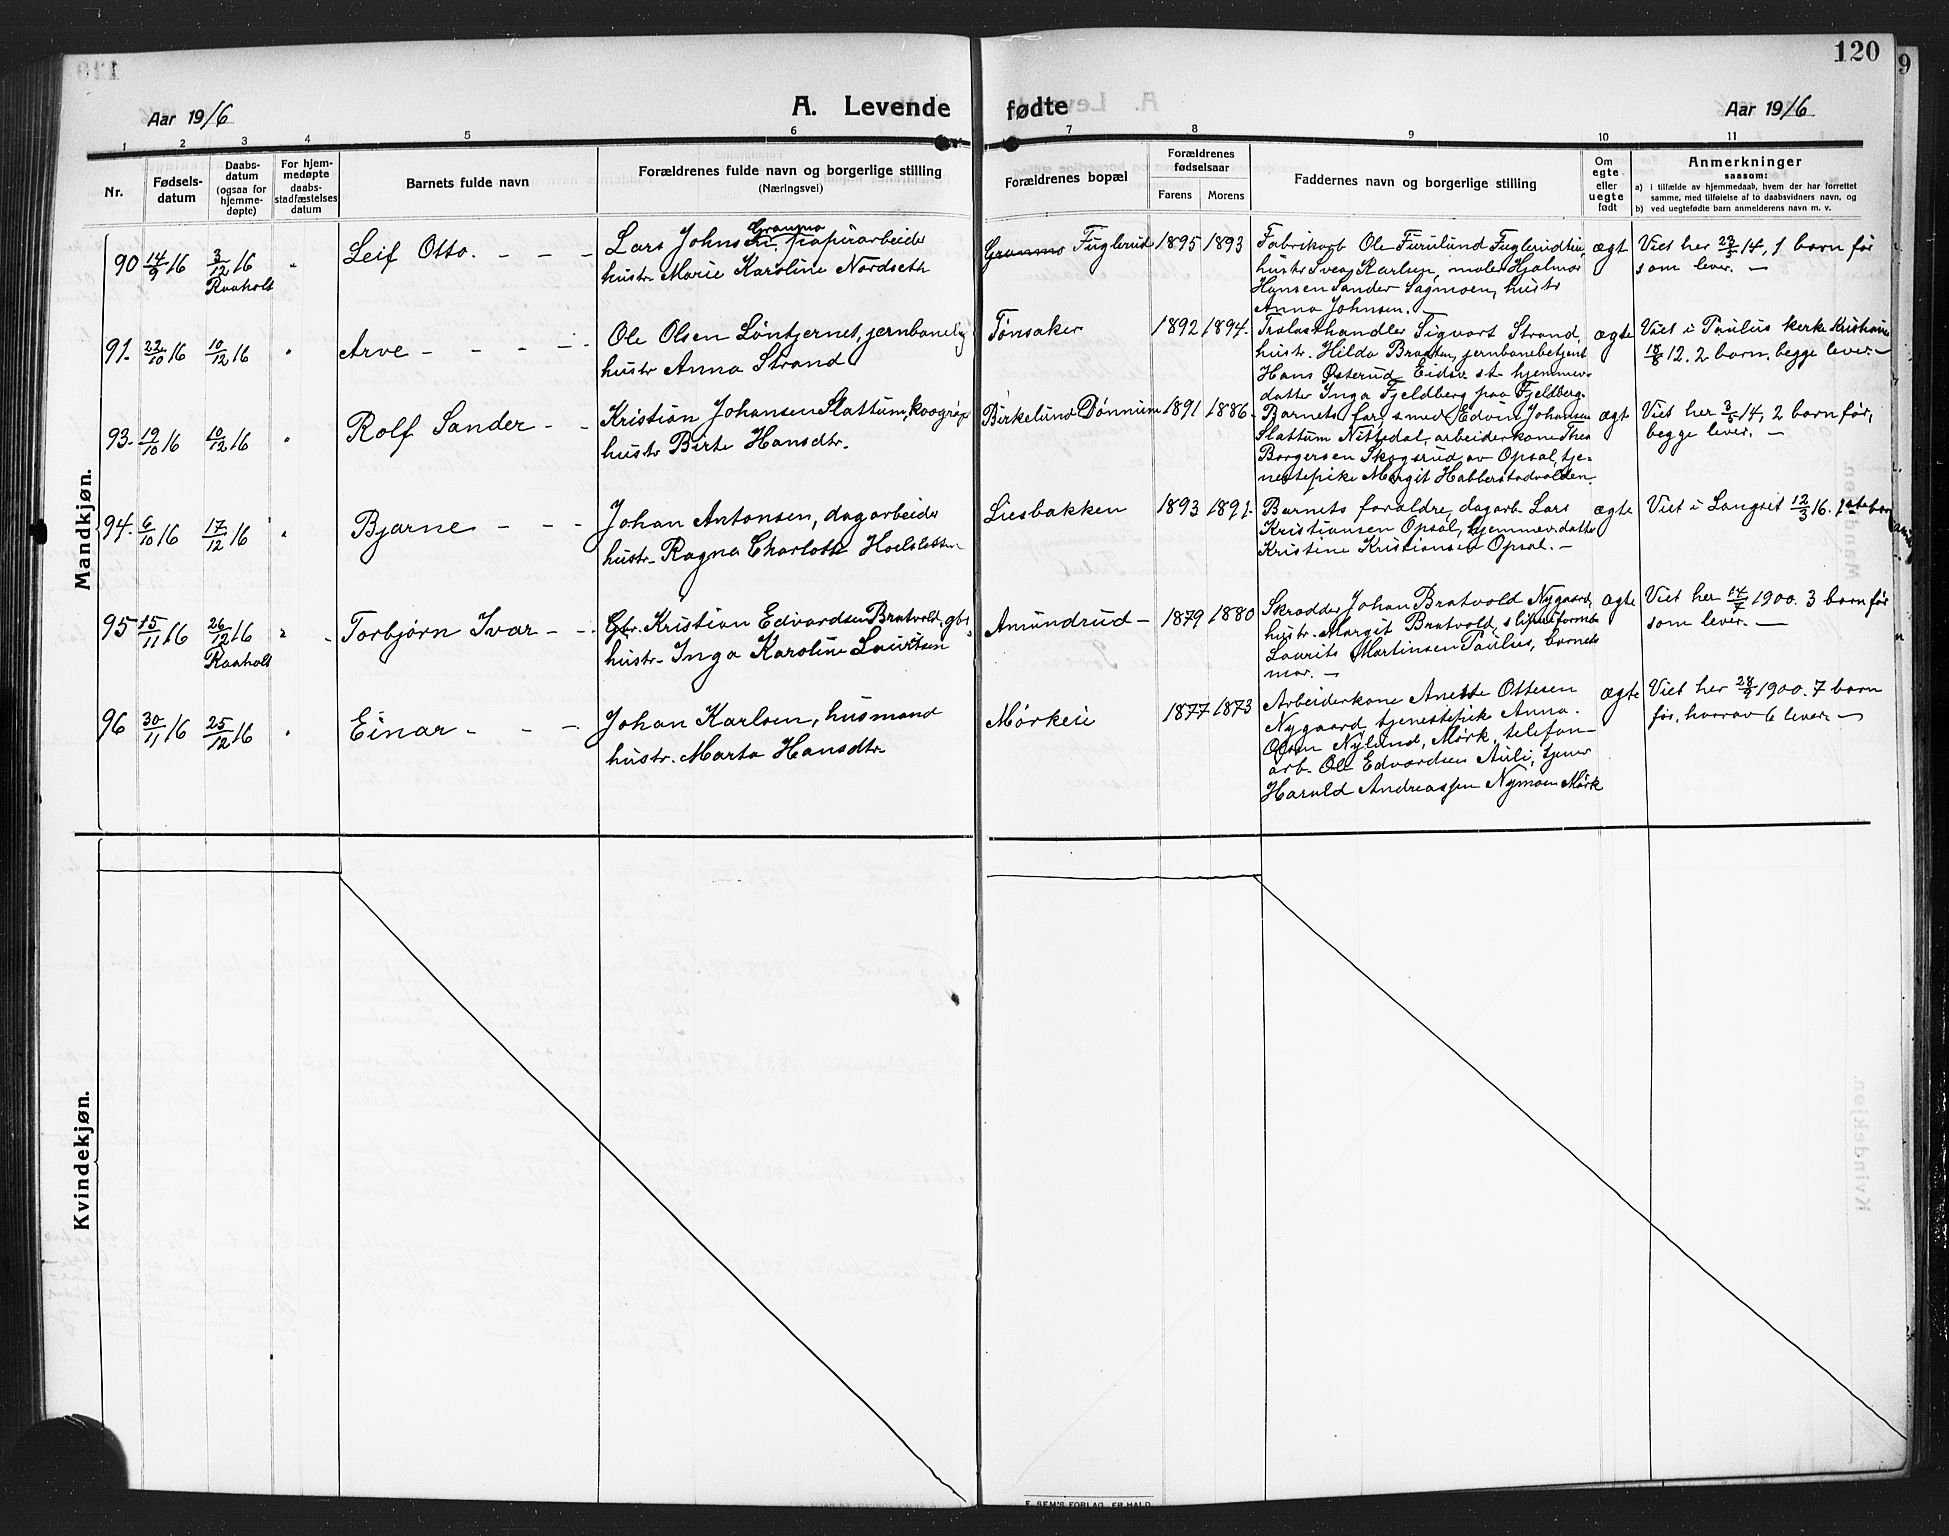 120
Aar 1916
A. Levende fødte
Aar 1916
1 2 3 4 5 6 7 8 9 10 11
Nr.
Fødsels-
datum
Daabs-
datum
(ogsaa for
hjemme-
døpte)
For hjem-
medøpte
daabs-
stadfæstelses
datum
Barnets fulde navn
Forældrenes fulde navn og borgerlige stilling
(Næringsvei)
Forældrenes bopæl
Forældrenes
fødselsaar
Farens
Morens
Faddernes navn og borgerlige stilling
Om
egte
eller
uegte
født
Anmerkninger
saasom:
a) i tilfælde av hjemmedaab, hvem der har forrettet
samme, med tilføielse af to daabsvidners navn, og
b) ved uegtefødte barn anmelderens navn m. v.
Mandkjøn.
90 14/9 16 3/12 16 "
Raaholt
Leif Otto. - - -
Gramno
Lars Johnsen, papirarbeider
hustr Marie Karoline Nordseth
Gramno Fuglerud
1895 1893
Fabrikarb Ole Furulund Fuglerudtein
hustr Svea Karlsen, maler Hjalmar
Hansen Sander Sagmoen, hustr
Anna Johnsen.
ægt
Viet her 23/5 14, 1 barn før
som lever. -
91. 22/10 16 10/12 16 "
Arve - - - - -
Ole Olsen Løntjernet, jernbanebtj
hustr Anna Strand
Tønsaker
1892 1894.
Trælasthandler Sigvart Strand,
hustr. Hilda Braaten, jernbanebetjent
Hans Østerud Eidsv. st. hjemmev.
datter Inga Fjeldberg paa Fjeldberg.
ægte
Viet i Paulus kerke Kristiania
18/8 12. 2 barn, begge lever. -
93. 19/10 16 10/12 16 "
Rolf Sander - -
Kristian Johansen Slattum,
hustr Birte Hansdtr.
Birkelund Dønnum
1891 1886.
Barnets far, smed Edvin Johansen
Slattum Nittedal, arbeiderkone Thea
Borgersen Skogsrud av Opsal, tje-
nestepike Margit Habberstadvolden.
ægt
Viet her 3/5 14, 2 barn før,
begge lever. -
94. 6/10 16 17/12 16 "
Bjarne - - -
Johan Antonsen, dagarbeider
hustr. Ragna Charlotte
Liesbakken
1893 1891.
Barnets foraldre, dagarb. Lars
Kristiansen Opsal, hjemmev. datter
Kristine Kristiansen Opsal. -
ægte
Viet i Langset 12/3 16. 1ste barn
95 15/11 16 26/12 16 "
Raaholt
Torbjørn Ivar - -
Gbr. Kristian Edvardsen Bratvold, gbr
hustr. Inga Karoline Lauritsen
Amundrud -
1879 1880
Skrædder Johan Bratvold Nygaard,
hustr. Margit Bratvold, sliperiformand
Laurits Martinsen Paulsen, barnets
mor. -
ægte
Viet her 14/7 1900. 3 barn før
som lever. -
96 30/11 16 25/12 16 "
Einar - - -
Johan Karlsen, husmand
hustr. Marta Hansdtr
Mørkeie
1877 1873
Arbeiderkone Anette Ottesen
Nygaard, tjenestepike Anna
Olsen Nylund, Mørk, telefon-
arb. Ole Edvardsen Auli, tjener
Harald Andreassen Nymoen Mørk
ægte
Viet her 28/9 1900. 7 barn
før, hvorav 6 lever. -
Kvindekjøn.
F. SEM'S FORLAG, FR.HALD